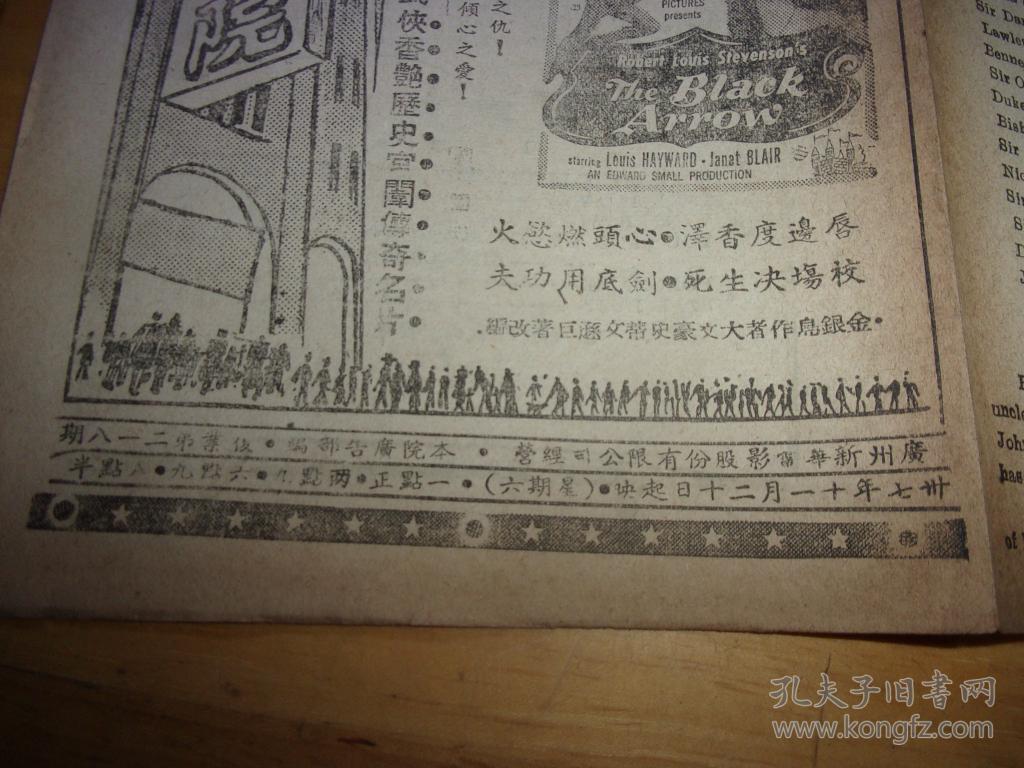 院
之仇！
傾心之愛！
俠香艷歷史宮闈傳奇名片
PICTURES
presents
Robert Louis Stevenson's
The Black
Arrow
starring Louis HAYWARD · Janet BLAIR
AN EDWARD SMALL PRODUCTION
唇邊度香澤·心頭燃慾火
校場決生死·劍底用功夫
·金銀島作者大文豪史蒂文遜巨著改編·
廣州新華電影股份有限公司經營·本院廣告部編·復業第二一八期
卅七年十一月二十日起映·(星期六)·一點正·兩點九·六點九·八點半
Sir Dan
Lawles
Benne
Sir O
Duke
Bish
Sir
Nic
Sir
uncle
John
has
of
孔夫子旧书网
www.kongfz.com